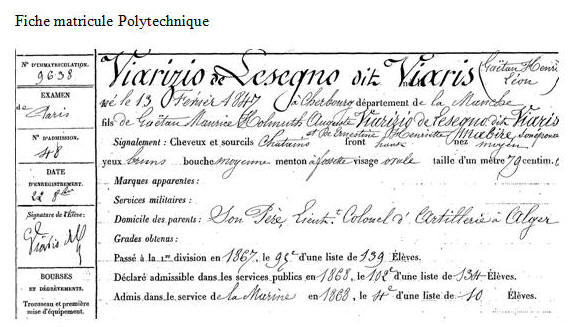 Fiche matricule Polytechnique
N° D'IMMATRICULATION.
9638
EXAMEN
de Paris
N° D'ADMISSION.
48
DATE
D'ENREGISTREMENT.
22 8bre
Signature de l'Élève:
Viaris
BOURSES
ET DÉGRÈVEMENTS.
Trousseau et première
mise d'équipement.
Viarizio de Lesegno dit Viaris (Gaëtan Henri
Léon)
né le 13 Février 1847 à Cherbourg département de la Manche
fils de Gaëtan Maurice Holmuth Auguste Viarizio de Lesegno dit Viaris
et de Ernestine Henriette Mabire, son épouse
Signalement: Cheveux et sourcils Chatains front haut nez moyen
yeux bruns bouche moyenne menton à fossette visage ovale taille d'un mètre 79 centim.
Marques apparentes:
Services militaires:
Domicile des parents: Son Père, Lieut.t Colonel d'Artillerie à Alger
Grades obtenus:
Passé à la 1re division en 1867, le 95e d'une liste de 139 Élèves.
Déclaré admissible dans les services publics en 1868, le 102e d'une liste de 134 Élèves.
Admis dans le service de la Marine en 1868, le 4e d'une liste de 10 Élèves.